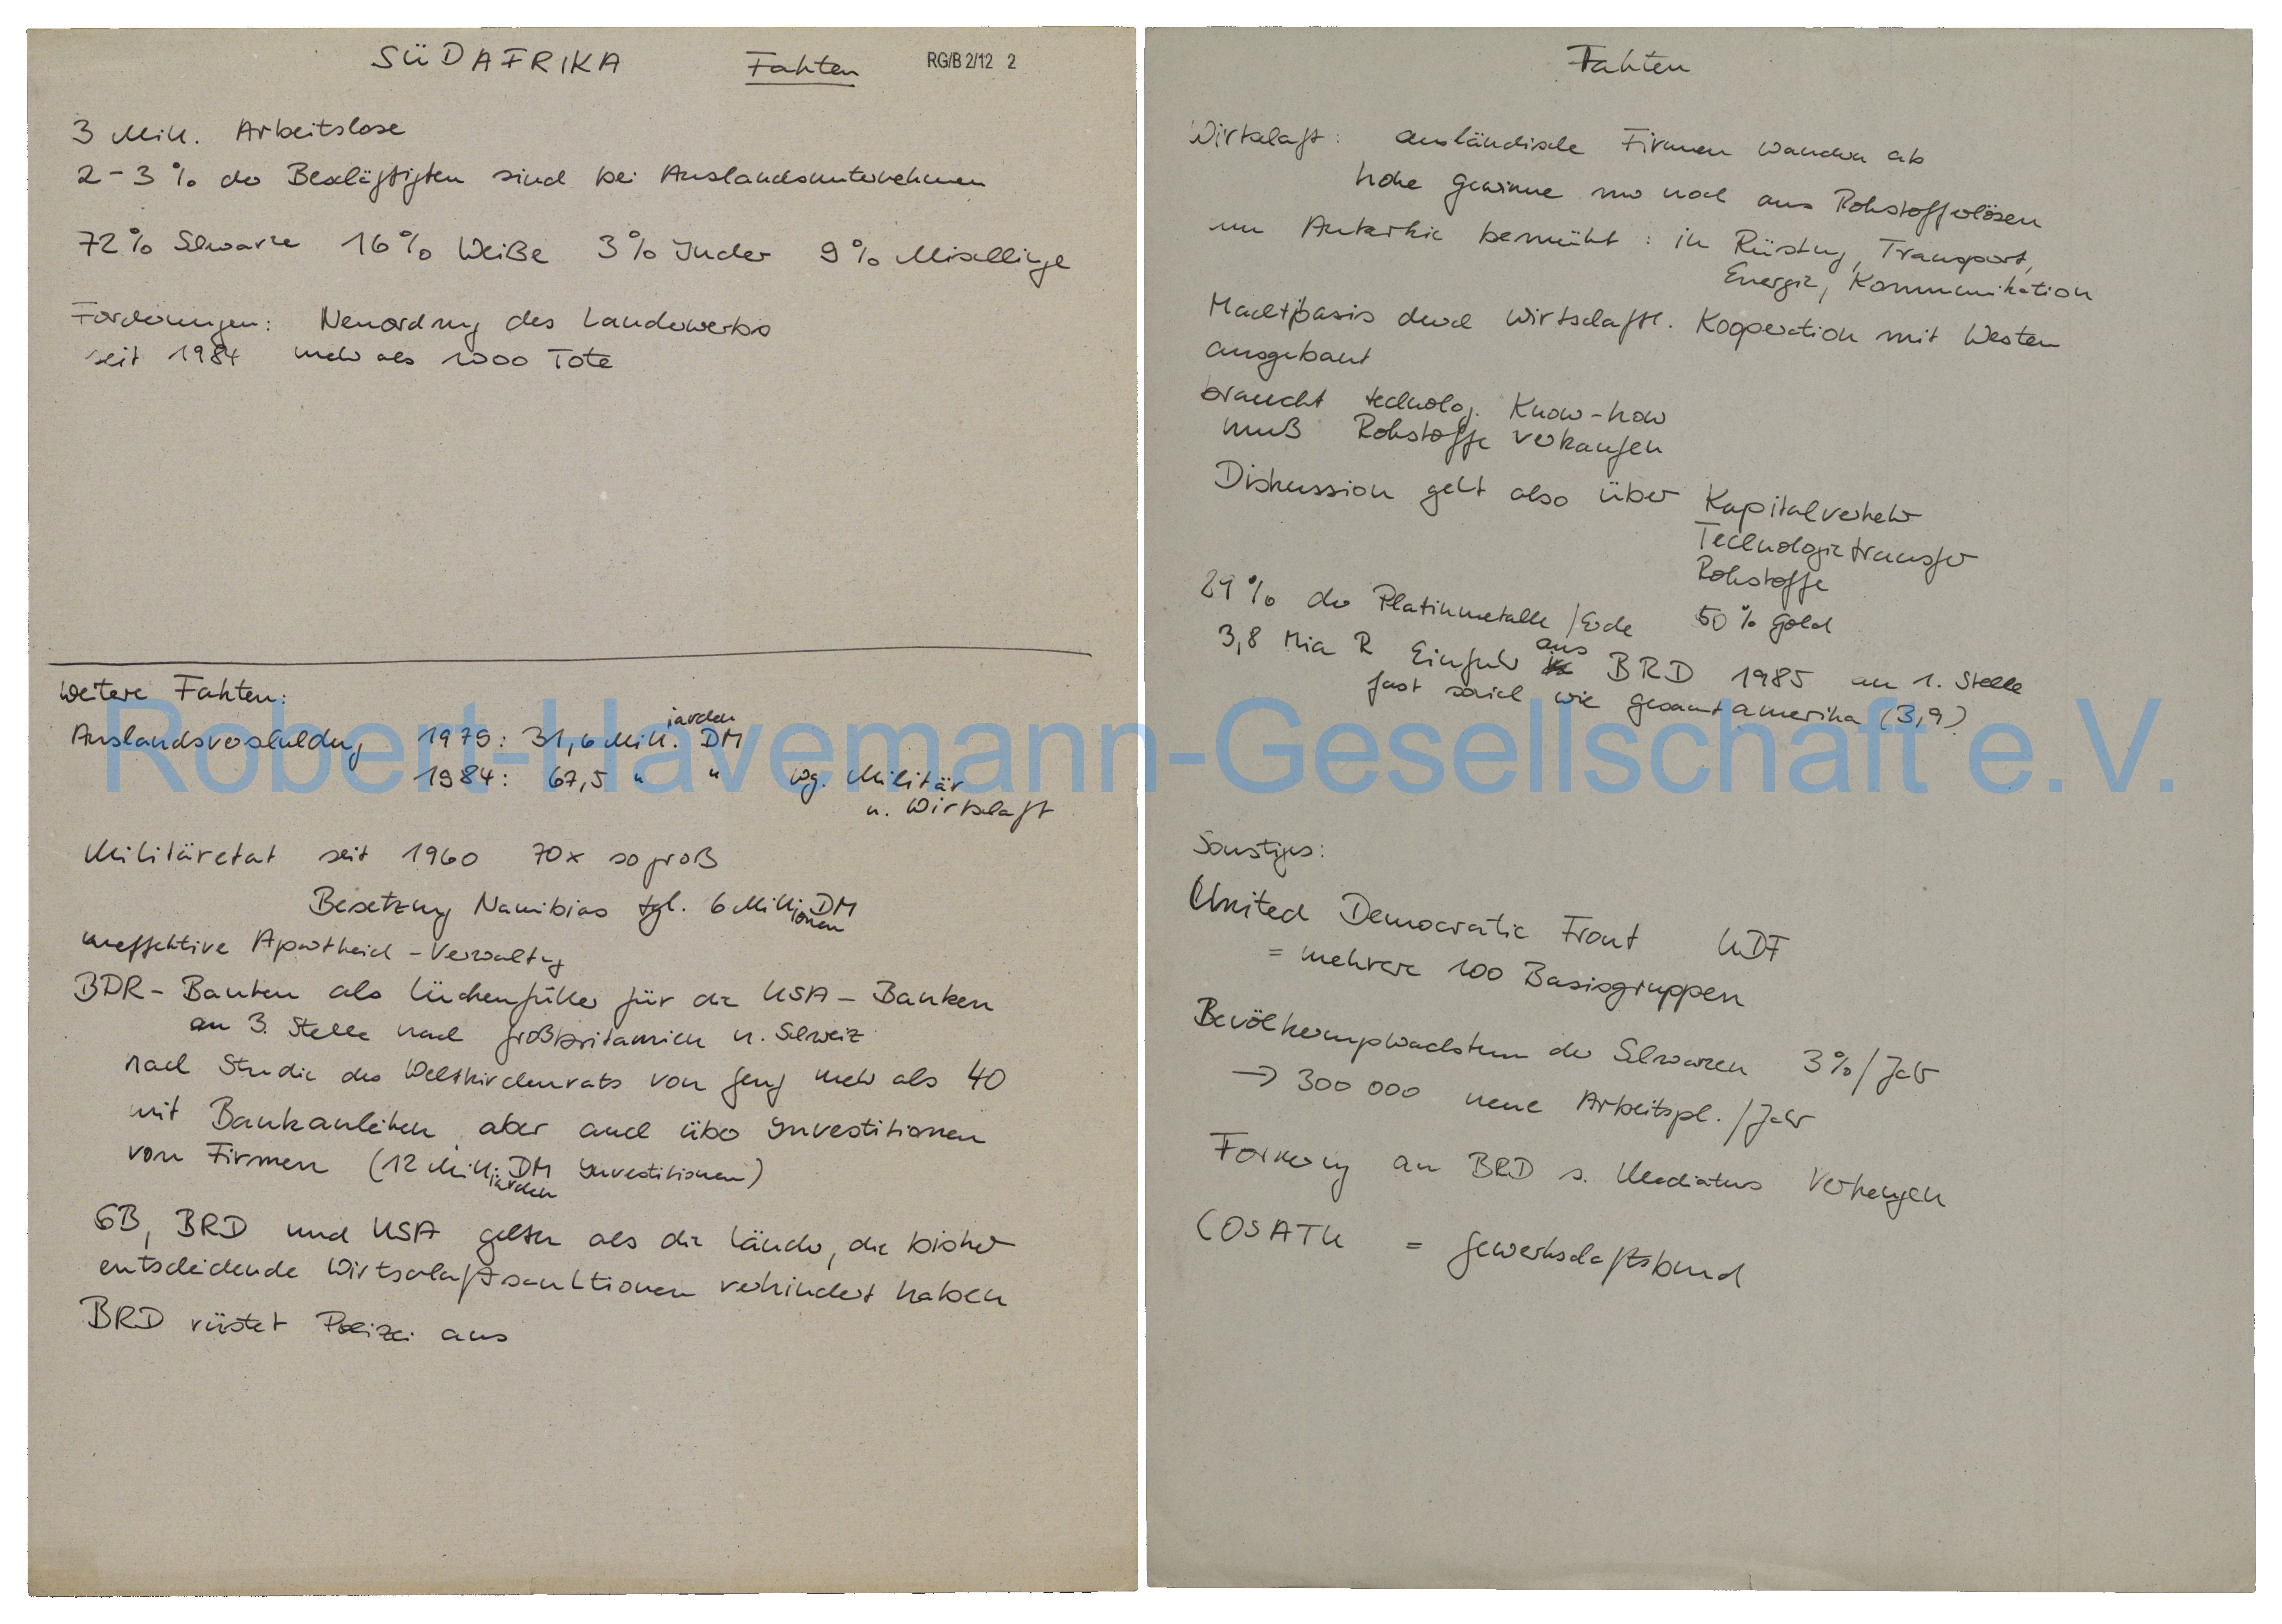 SÜDAFRIKA Fakten RG/B 2/12 2
3 Mill. Arbeitslose
2-3% der Beschäftigten sind bei Auslandsunternehmen
72% Schwarze 16% Weiße 3% Inder 9% Mischlinge
Forderungen: Neuordnung des Landerwerbs
seit 1984 mehr als 1000 Tote
Weitere Fakten:
Auslandsverschuldung 1979: 31,6 Milliarden DM
1984: 67,5 " " wg. Militär
u. Wirtschaft
Militäretat seit 1960 70x so groß
Besetzung Namibias tgl. 6 Millionen DM
uneffektive Apartheid-Verwaltung
BDR-Banken als Lückenfüller für die USA-Banken
an 3. Stelle nach Großbritannien u. Schweiz
nach Studie des Weltkirchenrats von Genf mehr als 40
mit Bankanleihen, aber auch über Investitionen
von Firmen (12 Milliarden DM Investitionen)
GB, BRD und USA gelten als die Länder, die bisher
entscheidende Wirtschaftssanktionen verhindert haben
BRD rüstet Polizei aus
Fakten
Wirtschaft: ausländische Firmen wandern ab
hohe Gewinne nur noch aus Rohstofferlösen
um Autarkie bemüht: in Rüstung, Transport,
Energie, Kommunikation
Machtbasis durch wirtschaftl. Kooperation mit Westen
ausgebaut
braucht technolog. Know-how
muß Rohstoffe verkaufen
Diskussion geht also über Kapitalverkehr
Technologietransfer
Rohstoffe
% der Platinmetalle/Erde 50% Gold
3,8 Mia R Einfuhr aus BRD 1985 an 1. Stelle
fast soviel wie Gesamtamerika (3,9)
Robert-Havemann-Gesellschaft e.V.
Sonstiges:
United Democratic Front UDF
= mehrere 100 Basisgruppen
Bevölkerungswachstum der Schwarzen 3%/Jahr
→ 300 000 neue Arbeitspl./Jahr
an BRD s. Verhengen
COSATU = Gewerkschaftsbund